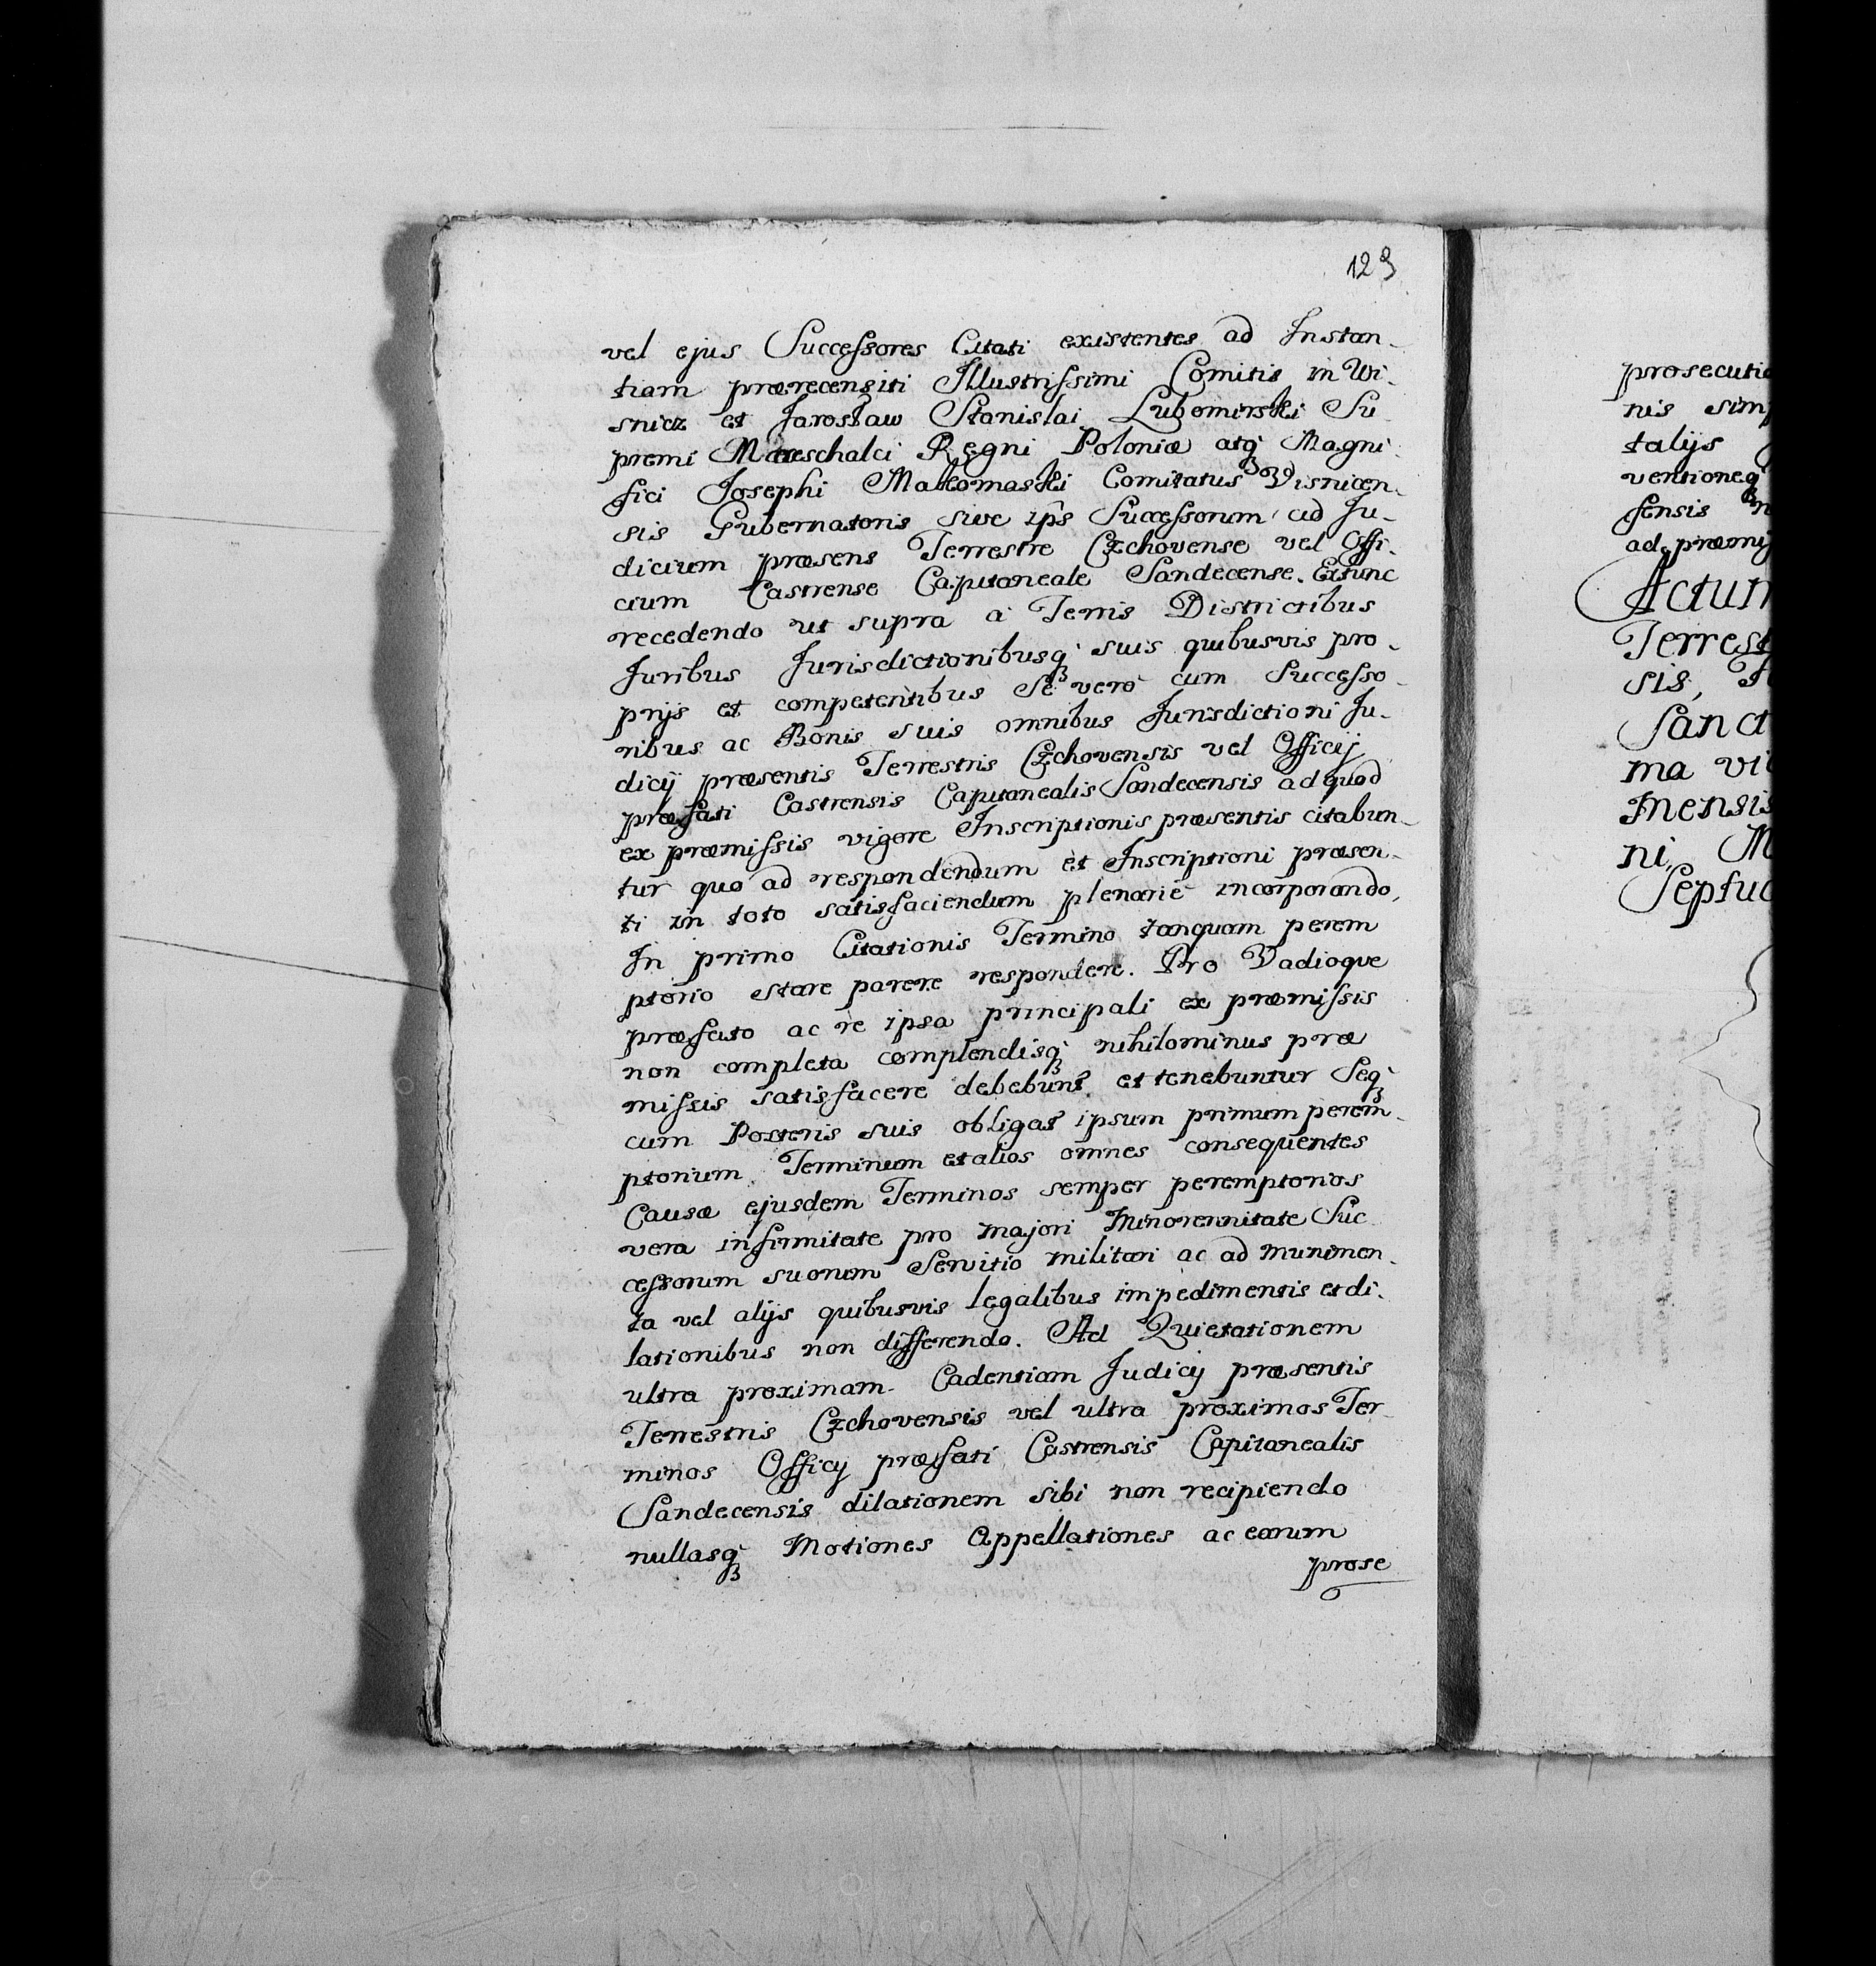 129
vel ejus Successores Citati existentes ad Instan-
tiam præreceņsiti Illustrissimi Comitis in Wi-
snicz et Jarosław Stanislai Lubomirski Su
premi Mareschalci Regni Poloniæ atq́ꝫ Magni-
fici Josephi Małkomaski Comitatus Visnicen-
sis Gubernatoris sive ips Successorum ad Ju-
dicium præsens Terrestre Czchovense vel Offi-
cium Castrense Capitaneale Sandecense. Extunc
recedendo ut supra à Terris Districtibus
Juribus Jurisdictionibusq́ꝫ suis quibusvis pro-
prijs et competentibus Se vero cum Successo-
ribus ac Bonis suis omnibus Jurisdictioni Ju-
dicij præsentis Terrestris Czchovensis vel Officij
præfati Castrensis Capitanealis Sandecensis ad quod
ex præmissis vigore Inscriptionis præsentis citabun-
tur quo ad respondendum et Inscriptioni præsen-
ti in toto satisfaciendum plenarie incorporando,
In primo Citationis Termino tanquam perem
ptorio stare parere respondere. Pro Vadioque
præfato ac re ipsa principali ex præmissis
non completa complendisq́ꝫ nihilominus præ
missis satisfacere debebunt et tenebuntur Seq́ꝫ
cum Posteris suis obligat ipsum primum perem-
ptorium Terminum et alios omnes consequentes
Causæ ejusdem Terminos semper peremptorios
vera infirmitate pro majori Minorennitate Suc
cessorum suorum Servitio militari ac ad munimen-
ta vel alijs quibusvis legalibus impedimentis et di-
lationibus non differendo. Ad Quietationem
ultra proximam Cadentiam Judicij præsentis
Terrestris Czchovensis vel ultra proximos Ter-
minos Officij præfati Castrensis Capitanealis
Sandecensis dilationem sibi non recipiendo
nullasq́ꝫ Motiones Appellationes ac earum
prose
prosecutio
nis simp
talijs
ventioneq́ꝫ
fensis
ad præmis
Actum
Terrest
sis,
Sanct
ma vi
mensis
ni, M
Septua